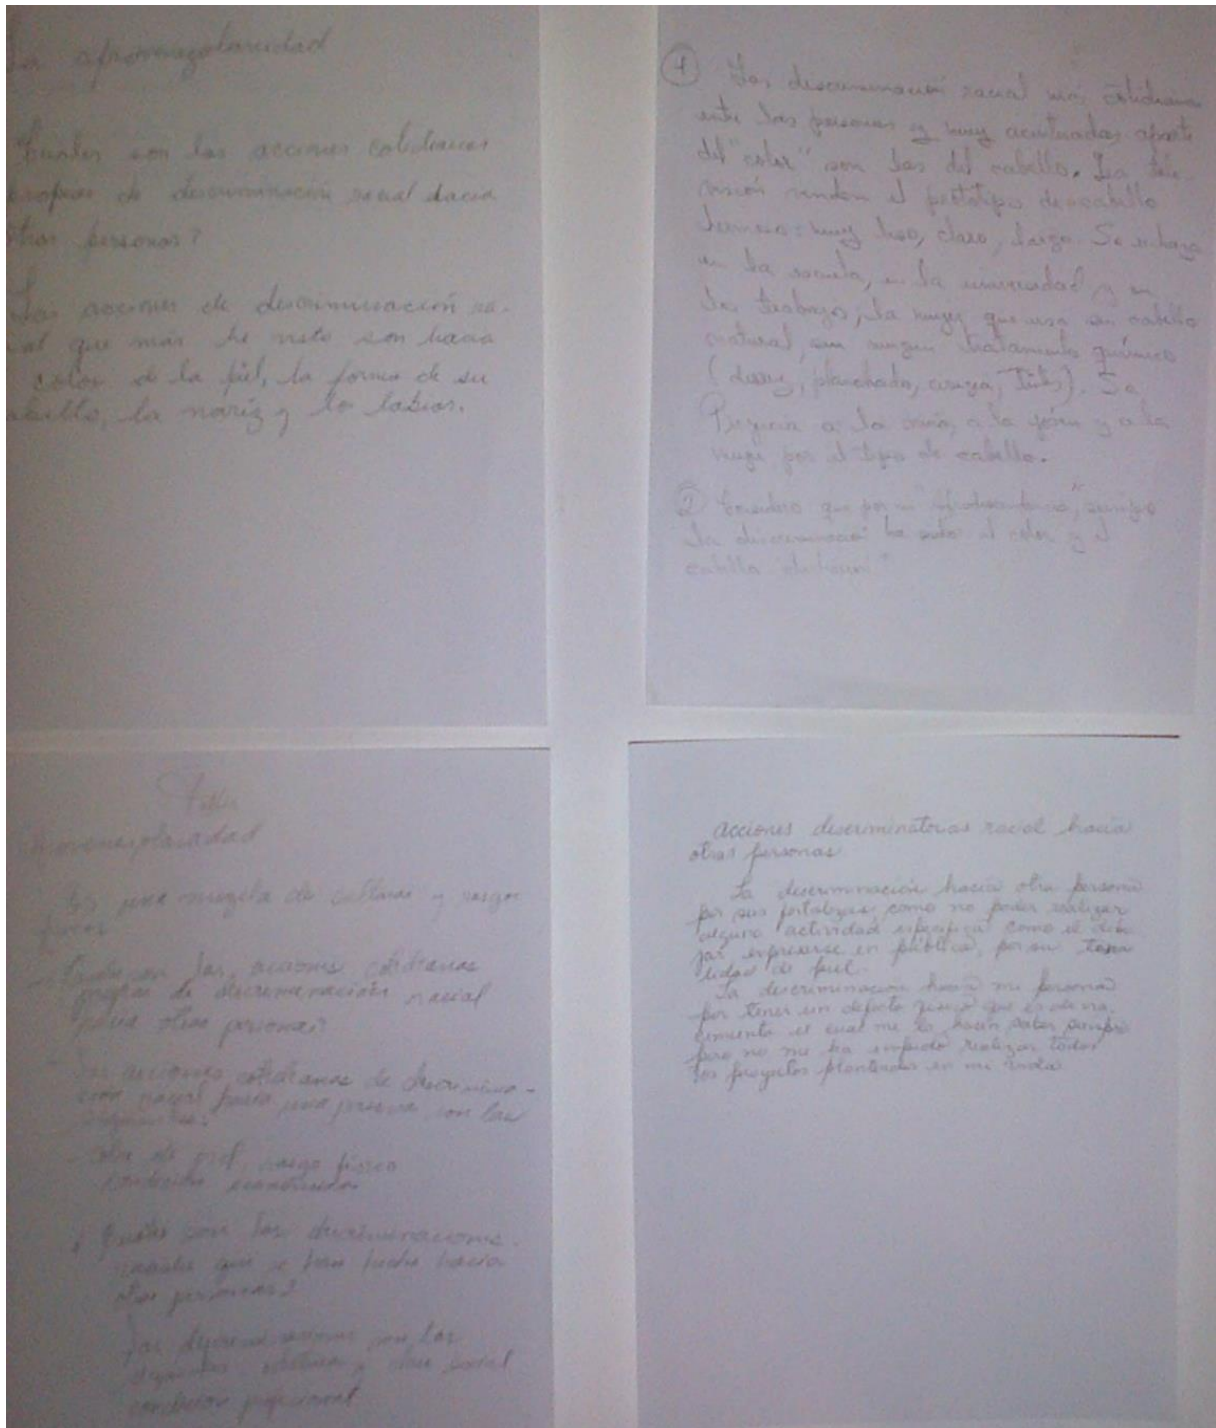 La afrovenezolanidad
Cuales son las acciones cotidianas
propias de discriminación racial hacia
otras personas?
Las acciones de discriminación ra-
cial que mas he visto son hacia
color de la piel, la forma de su
cabello, la nariz y lo labios.
① Las discriminación racial más cotidiana
entre las personas y muy acentuadas aparte
del "color" son las del cabello. La tele-
visión venden el prototipo de cabello
hermoso: muy liso, claro, largo. Se rechaza
en la escuela, en la universidad y en
los trabajos, la mujer que usa su cabello
natural, sin ningun tratamiento químico
planchado, Se
a la niña, a la joven y a la
mujer por el tipo de cabello.
② Considero que por mi siempre
la discriminació ha sido el color y el
cabello
Es una mezcla de culturas y rasgos
fisicos
las acciones cotidianas
propias de discriminación racial
hacia otras personas?
Las acciones cotidianas de discrimina-
ción racial hacia una persona son las
siguientes:
color de piel, rasgo físico
condición económica
Cuales son las discriminaciones
raciales que se han hecho hacia
otras personas?
Las discriminaciones son las
siguientes clase social
condición profesional
acciones discriminatorias racial hacia
otras personas
La discriminación hacia otra persona
por sus fortalezas, como no poder realizar
alguna actividad especifica como el dej
jar expresarse en público, por su tona
lidad de piel.
La discriminación hacia mi persona
por tener un defecto que es de na
cimiento el cual me lo hacen saber siempre
pero no me ha impedido realizar todos
los proyectos planteados en mi vida